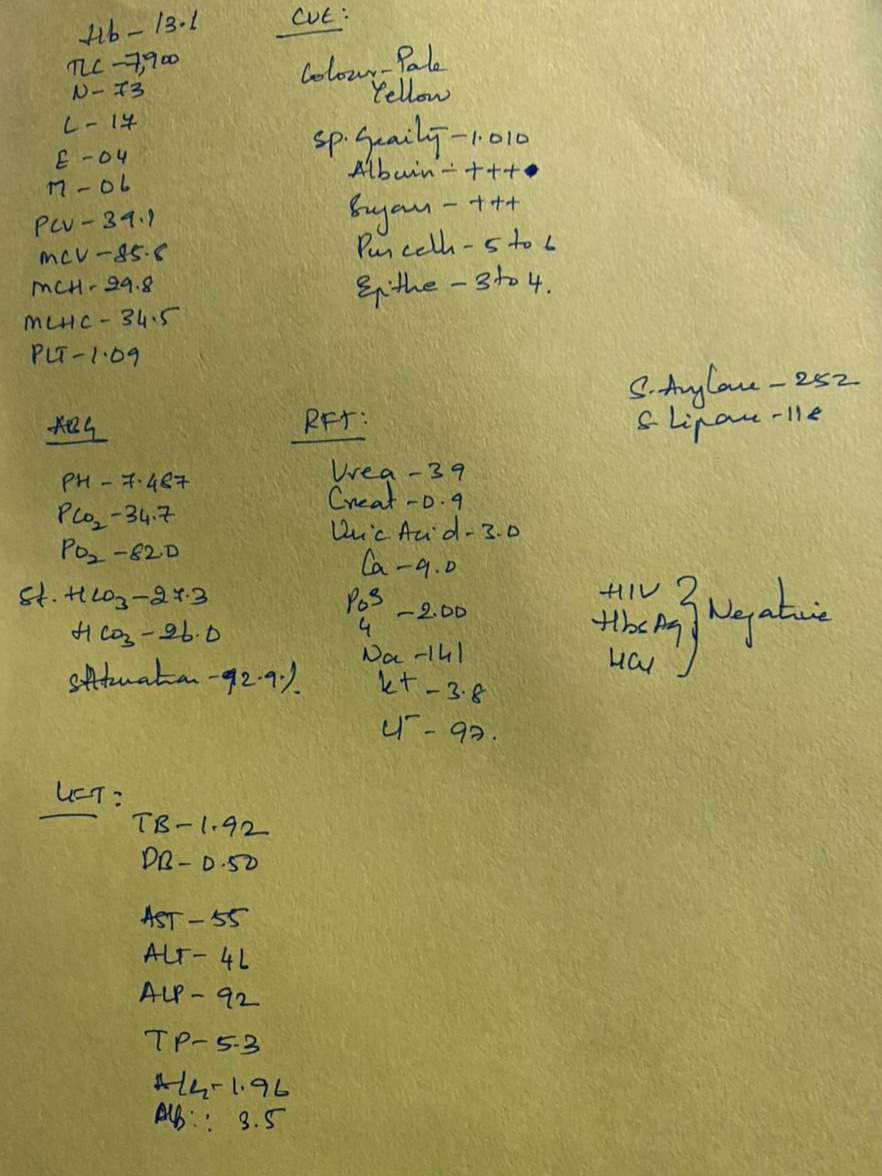 Hb - 13.1
TLC - 7,900
N - 73
L - 17
E - 04
M - 06
PCV - 39.1
MCV - 85.6
MCH - 29.8
MCHC - 34.5
PLT - 1.09
CUE:
Colour - Pale
Yellow
Sp. Gravity - 1.010
Albumin - +++
Sugars - +++
Pus cells - 5 to 6
Epithe - 3 to 4.
S. Amylase - 252
S Lipase - 118
ABG
PH - 7.487
PCO2 - 34.7
PO2 - 62.0
St. HCO3 - 27.3
HCO3 - 26.0
Saturation - 92.9%
RFT:
Urea - 39
Creat - 0.9
Uric Acid - 3.0
Ca - 9.0
PO3
4 - 2.00
Na - 141
K+ - 3.8
Cl- - 97.
HIV
HbsAg } Negative
HCV
LFT:
TB - 1.92
DB - 0.50
AST - 55
ALT - 46
ALP - 92
TP - 5.3
A/G - 1.96
Alb : 3.5